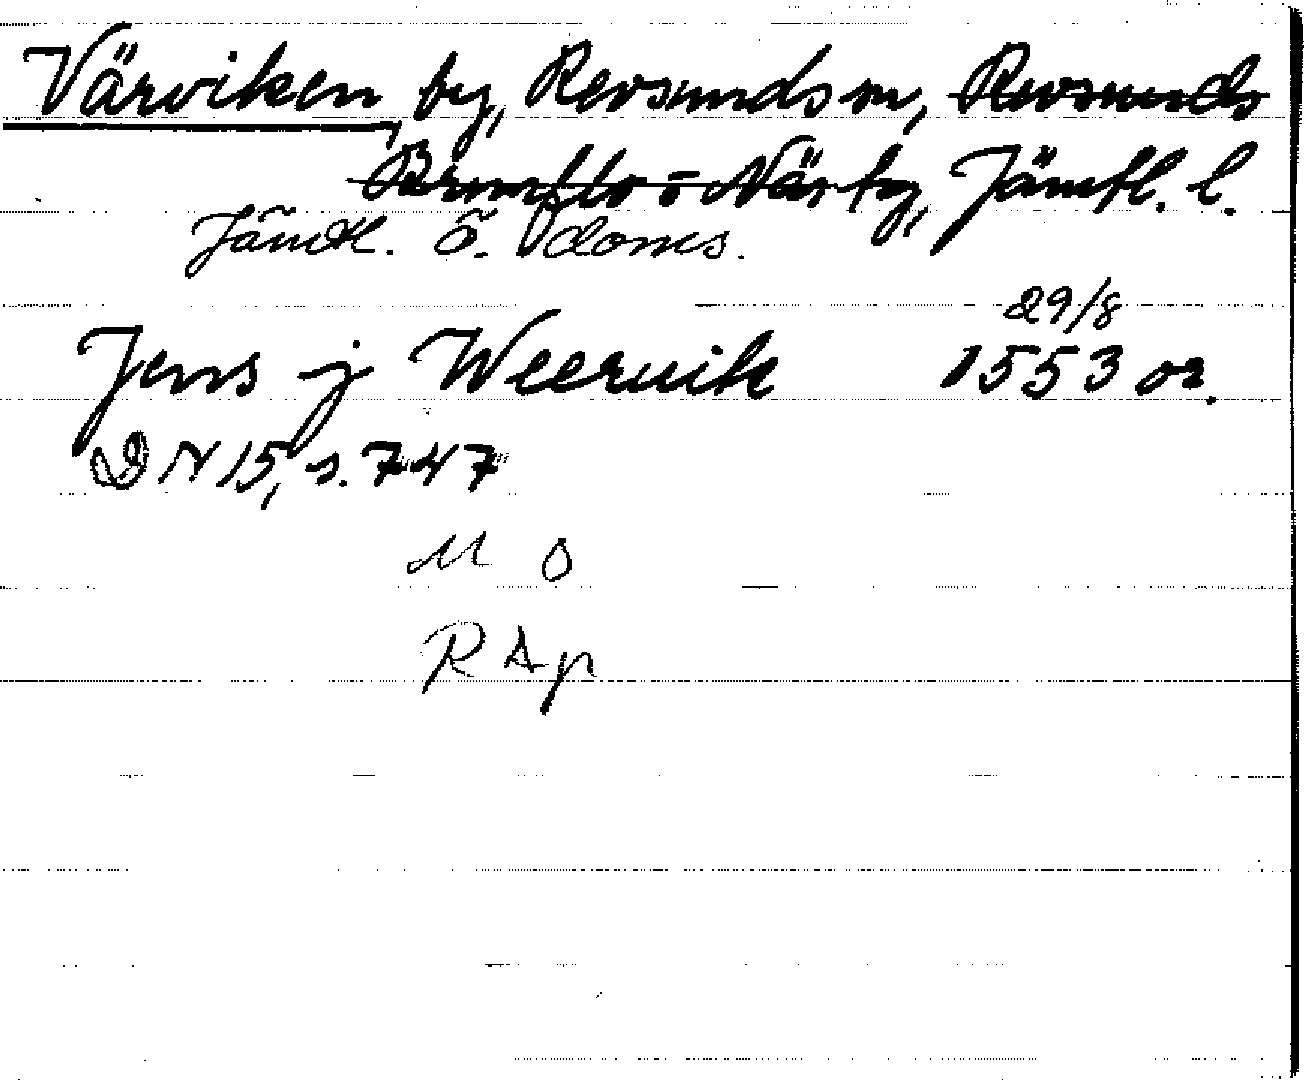 Värviken, by, Revsunds sn, Revsunds
Brunflo o Näs tg, Jämtl. l.
Jämtl. ö. doms.
29/8
Jens j Weeruik 1553 or.
DN 15, s. 747
M O
R Ap